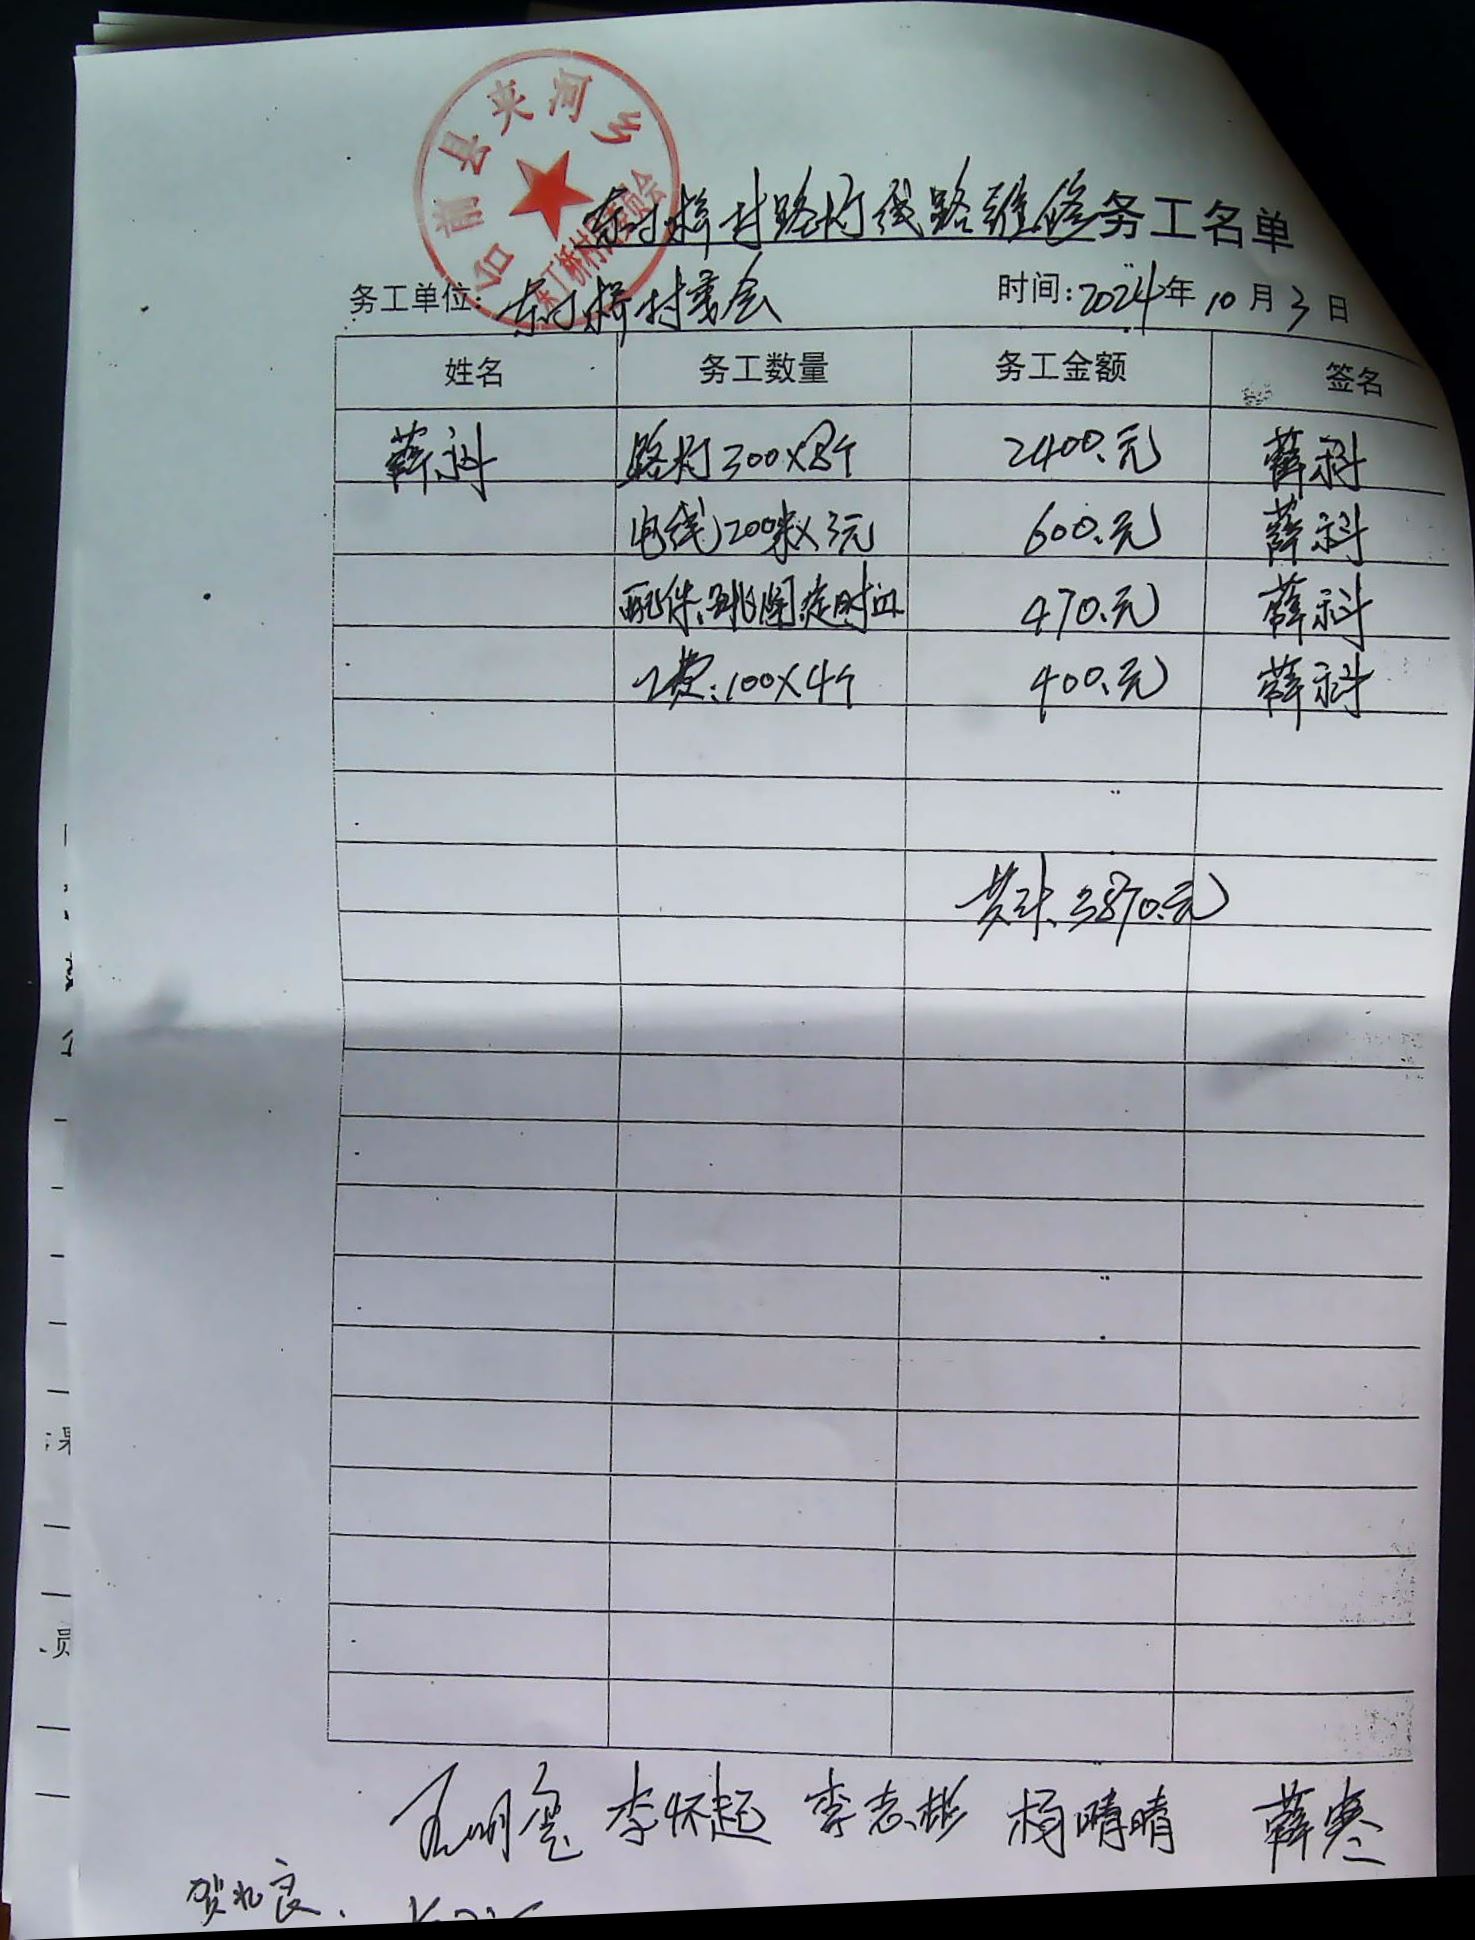 台前县夹河乡
东丁桥村民委员会
东丁桥村路灯线路维修务工名单
务工单位：东丁桥村委会 时间：2024年10月3日
姓名 务工数量 务工金额 签名
薛科 路灯300×8个 2400.元 薛科
电线200米×3元 600.元 薛科
配件、跳闸、定时 470.元 薛科
工费：100×4个 400.元 薛科
共计、3870.元
李怀起 李志彬 杨晴晴 薛寒
员